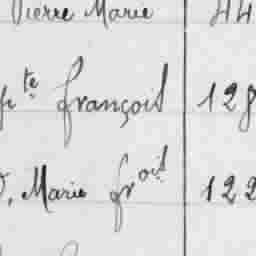 Pierre Marie 44
pte François 128
, Marie frois 122